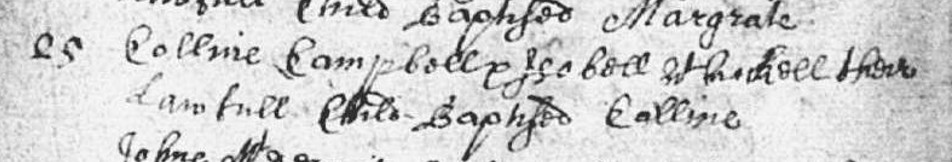 Child Baptised Margrate
25 Colline Campbell & Issobell their
Lawfull Child Baptised Colline
Johne